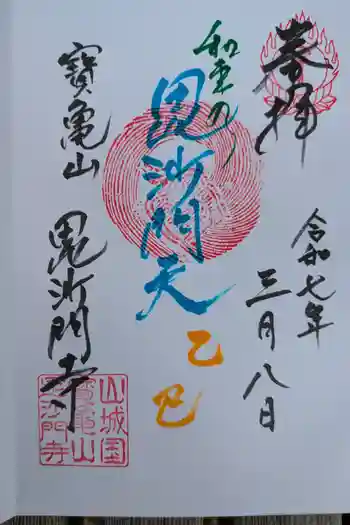 奉拝
令和七年
三月八日
毘沙門天
乙巳
寶亀山
毘沙門寺
山城国
寶亀山
毘沙門寺